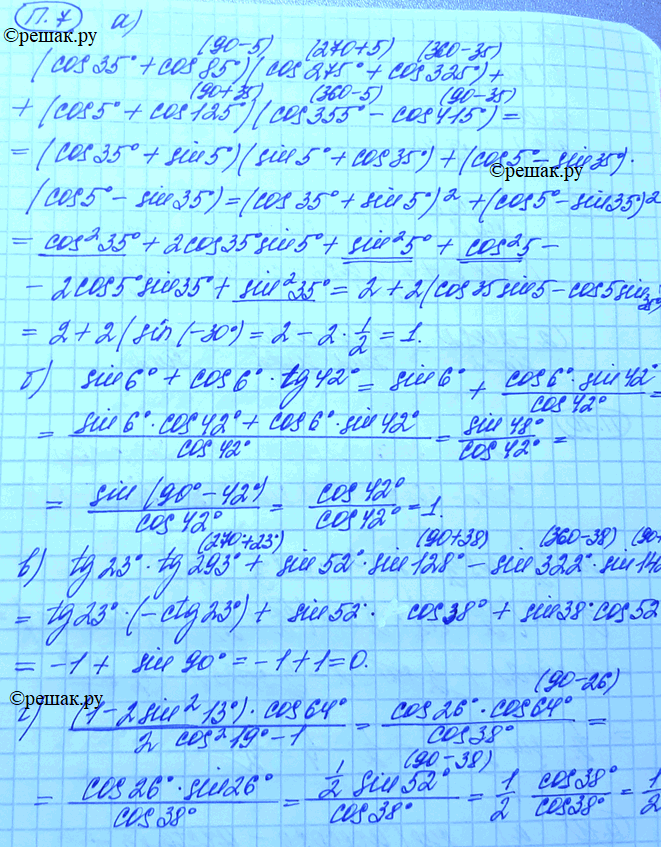 П. 7 а)
©решак.ру
(90-5) (270+5) (360-35)
(cos 35° + cos 85°)(cos 275° + cos 325°) +
(90+35) (360-5) (90-35)
+ (cos 5° + cos 125°)(cos 355° - cos 415°) =
= (cos 35° + sin 5°)(sin 5° + cos 35°) + (cos 5° - sin 35°) ·
©решак.ру
(cos 5° - sin 35) = (cos 35° + sin 5°)² + (cos 5° - sin 35°)²
= cos² 35° + 2cos 35° sin 5° + sin² 5° + cos² 5 -
- 2cos 5° sin 35° + sin² 35° = 2 + 2(cos 35 sin 5 - cos 5 sin 35°)
= 2 + 2(sin(-30°) = 2 - 2 · 1/2 = 1.
б) sin 6° + cos 6° · tg 42° = sin 6° + cos 6° · sin 42° / cos 42° =
= sin 6° · cos 42° + cos 6° · sin 42° / cos 42° = sin 48° / cos 42° =
= sin (90° - 42°) / cos 42° = cos 42° / cos 42° = 1.
(270+23°) (90+38) (360-38) (90+
в) tg 23° · tg 293° + sin 52° · sin 128° - sin 322° · sin 14
= tg 23° · (-ctg 23°) + sin 52 · cos 38° + sin 38° cos 52
= -1 + sin 90° = -1 + 1 = 0.
©решак.ру
(90-26)
г) (1 - 2 sin² 13°) · cos 64° / 2 cos² 19° - 1 = cos 26° · cos 64° / cos 38° =
(90-38)
= cos 26° · sin 26° / cos 38° = 1/2 sin 52° / cos 38° = 1/2 cos 38° / cos 38° = 1/2